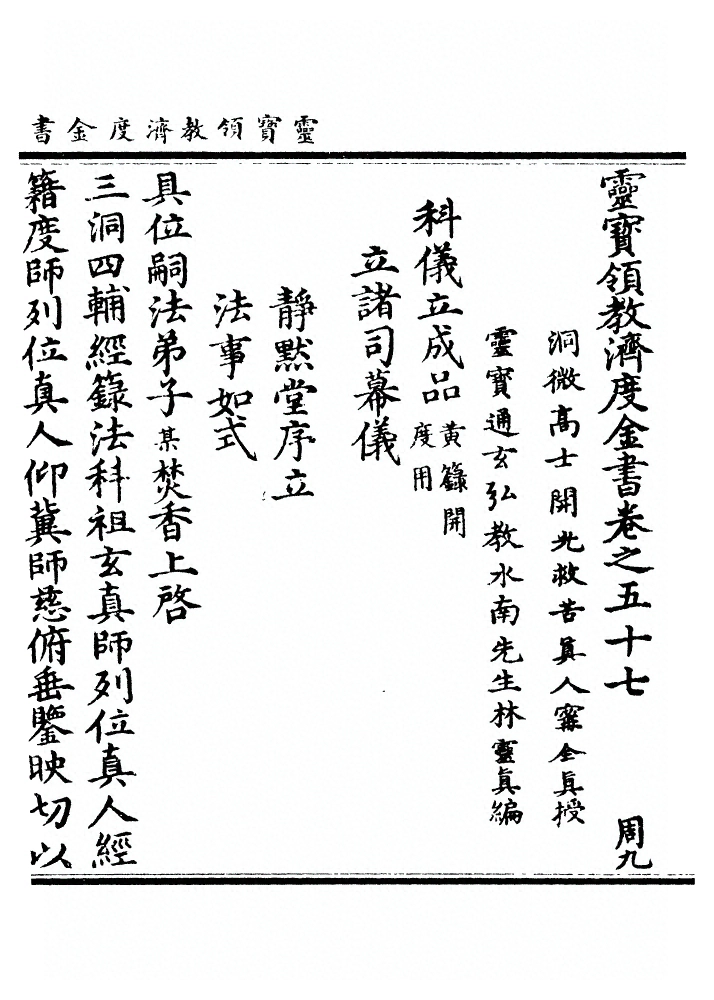 靈寶領教濟度金書
靈寶領教濟度金書卷之五十七 周九
洞微高士開光救苦眞人寗全眞授
靈寶通玄弘教水南先生林靈眞編
科儀立成品 黃籙開度用
立諸司幕儀
靜默堂序立
法事如式
具位嗣法弟子某焚香上啓
三洞四輔經籙法科祖玄真師列位真人經
籍度師列位真人仰冀師慈俯垂鑒映切以